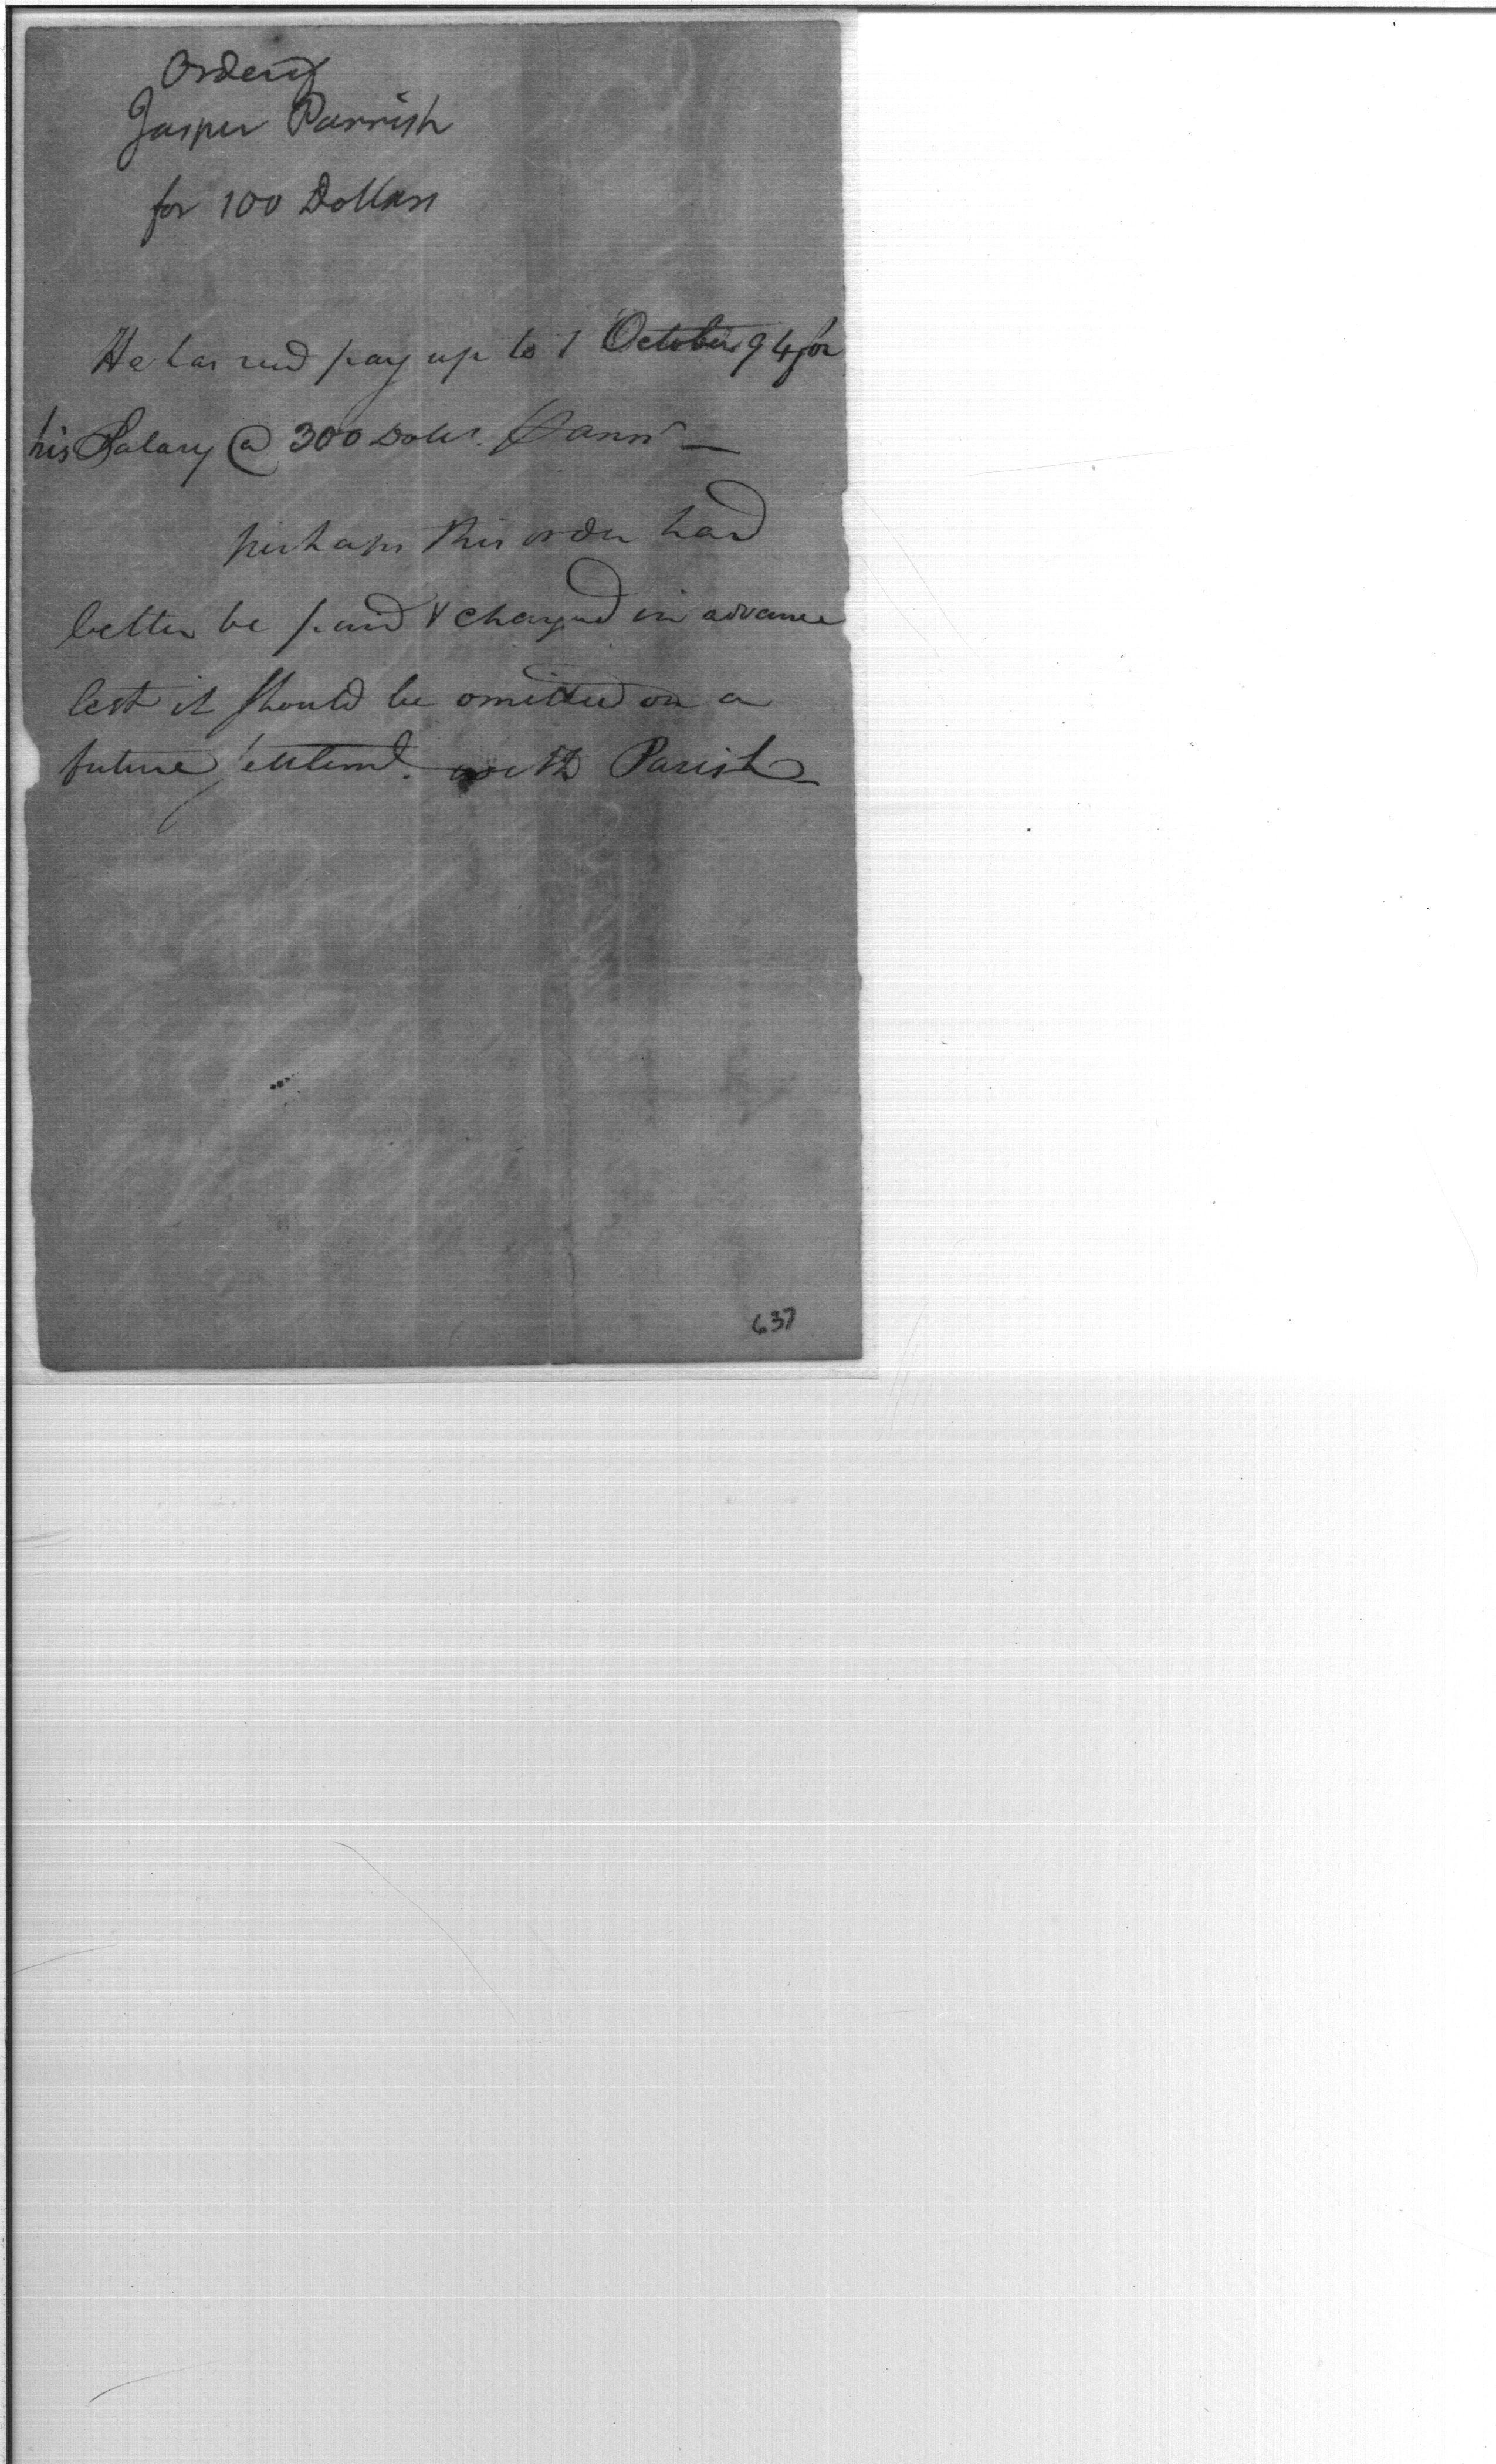 Order of
Jasper Parrish
for 100 Dollars
He has recd pay up to 1 October 94 for
his Salary @ 300 Dolls. p ann
perhaps this order had
better be paid & charged in advance
lest it should be omitted on a
future settlemt. with Parish
637